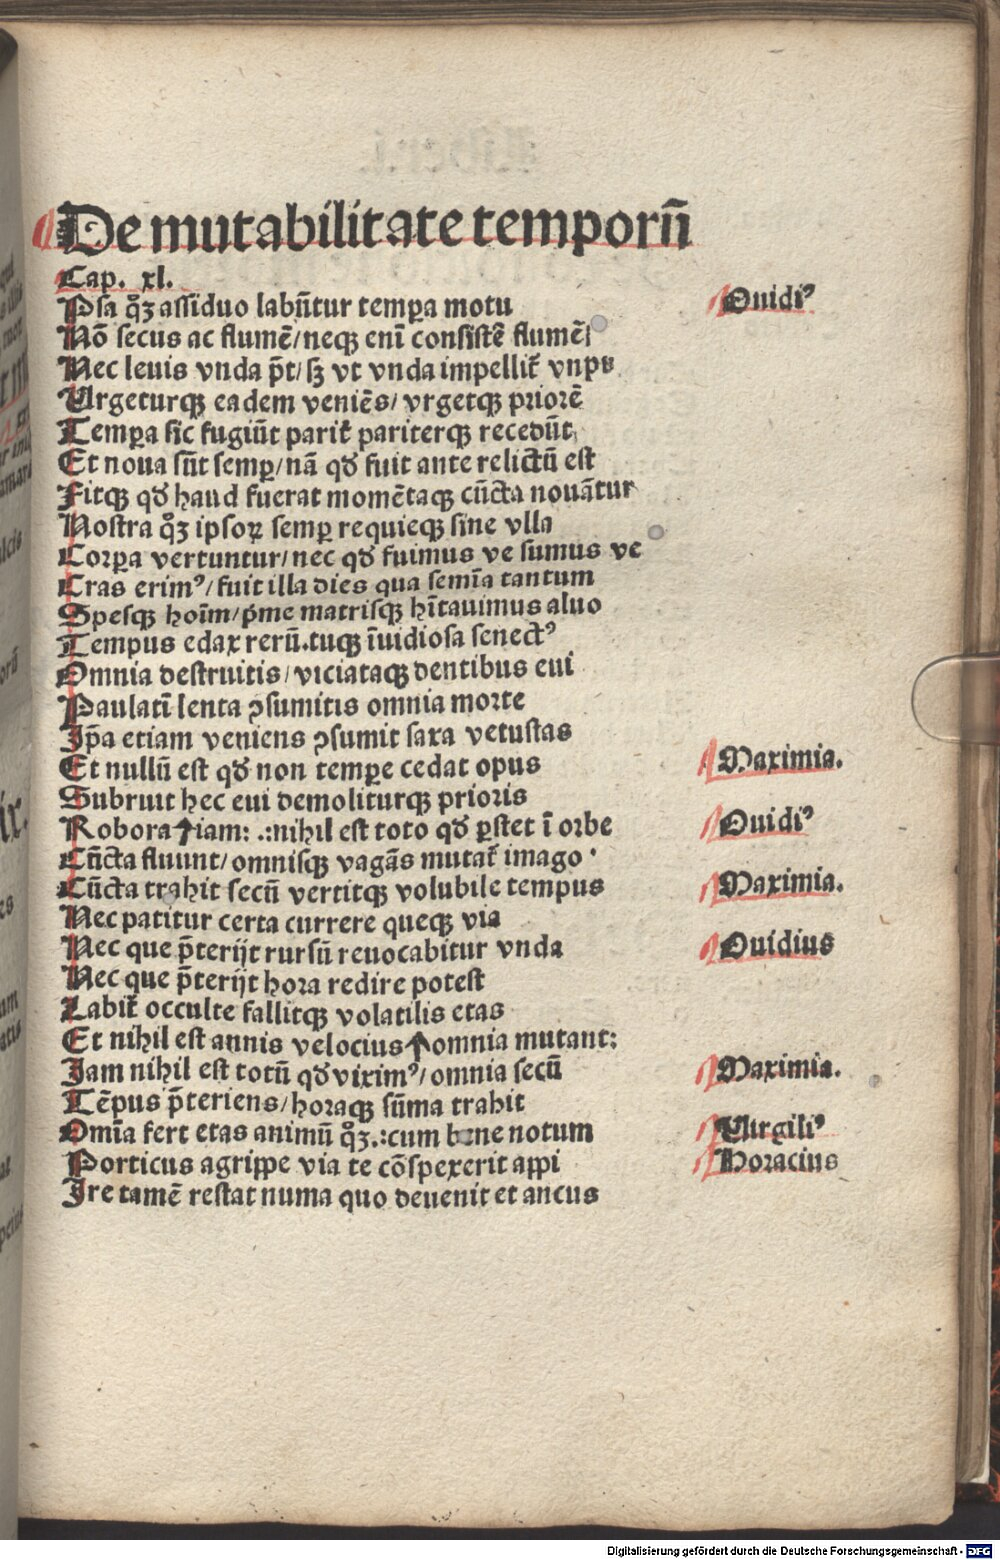 De mutabilitate temporū
Cap. xl.
Psa qꝫ̊ assiduo labūtur temꝑa motu
Ouidiꝰ
Nō secus ac flumē/neqꝫ eni consistē flumē/
Nec leuis vnda p̄t/sꝫ vt vnda impellit᷑
Urgeturqꝫ eadem veniēs/vrgetqꝫ priorē
Temꝑa sic fugiūt parit᷑ pariterqꝫ recedūt,
Et noua sūt semꝑ/nā qđ fuit ante relictū est
Fitqꝫ qđ haud fuerat momētaqꝫ cūcta nouātur
Nostra qꝫ̊ ipsoꝝ semꝑ requieqꝫ sine vlla
Corꝑa vertuntur/nec qđ fuimus ve sumus ve
Cras erimꝰ/fuit illa dies qua semīa tantum
Spesqꝫ hoīm/p̄me matrisqꝫ hītauimus aluo
Tempus edax rerū.tuqꝫ īuidiosa senectꝰ
Omnia destruitis/viciataqꝫ dentibus eui
Paulatī lenta ꝯsumitis omnia morte
Ip̄a etiam veniens ꝯsumit saxa vetustas
Et nullū est qđ non temꝑe cedat opus
Maximia.
Subruit hec eui demoliturqꝫ prioris
Robora✝iam: .:nihil est toto qđ ꝑstet ī orbe
Ouidiꝰ
Cūcta fluunt/omnisqꝫ vagās mutat᷑ imago.
Cūcta trahit secū vertitqꝫ volubile tempus
Maximia.
Nec patitur certa currere queqꝫ via
Nec que p̄terijt rursū reuocabitur vnda
Ouidius
Nec que p̄terijt hora redire potest
Labit᷑ occulte fallitqꝫ volatilis etas
Et nihil est annis velocius✝omnia mutant:
Iam nihil est totū qđ viximꝰ/omnia secū
Maximia.
Tēpus p̄teriens/horaqꝫ sūma trahit
Omīa fert etas animū qꝫ̊.:cum bene notum
Uirgiliꝰ
Porticus agrippe via te cōspexerit appi
Horacius
Ire tamē restat numa quo deuenit et ancus
Digitalisierung gefördert durch die Deutsche Forschungsgemeinschaft - DFG